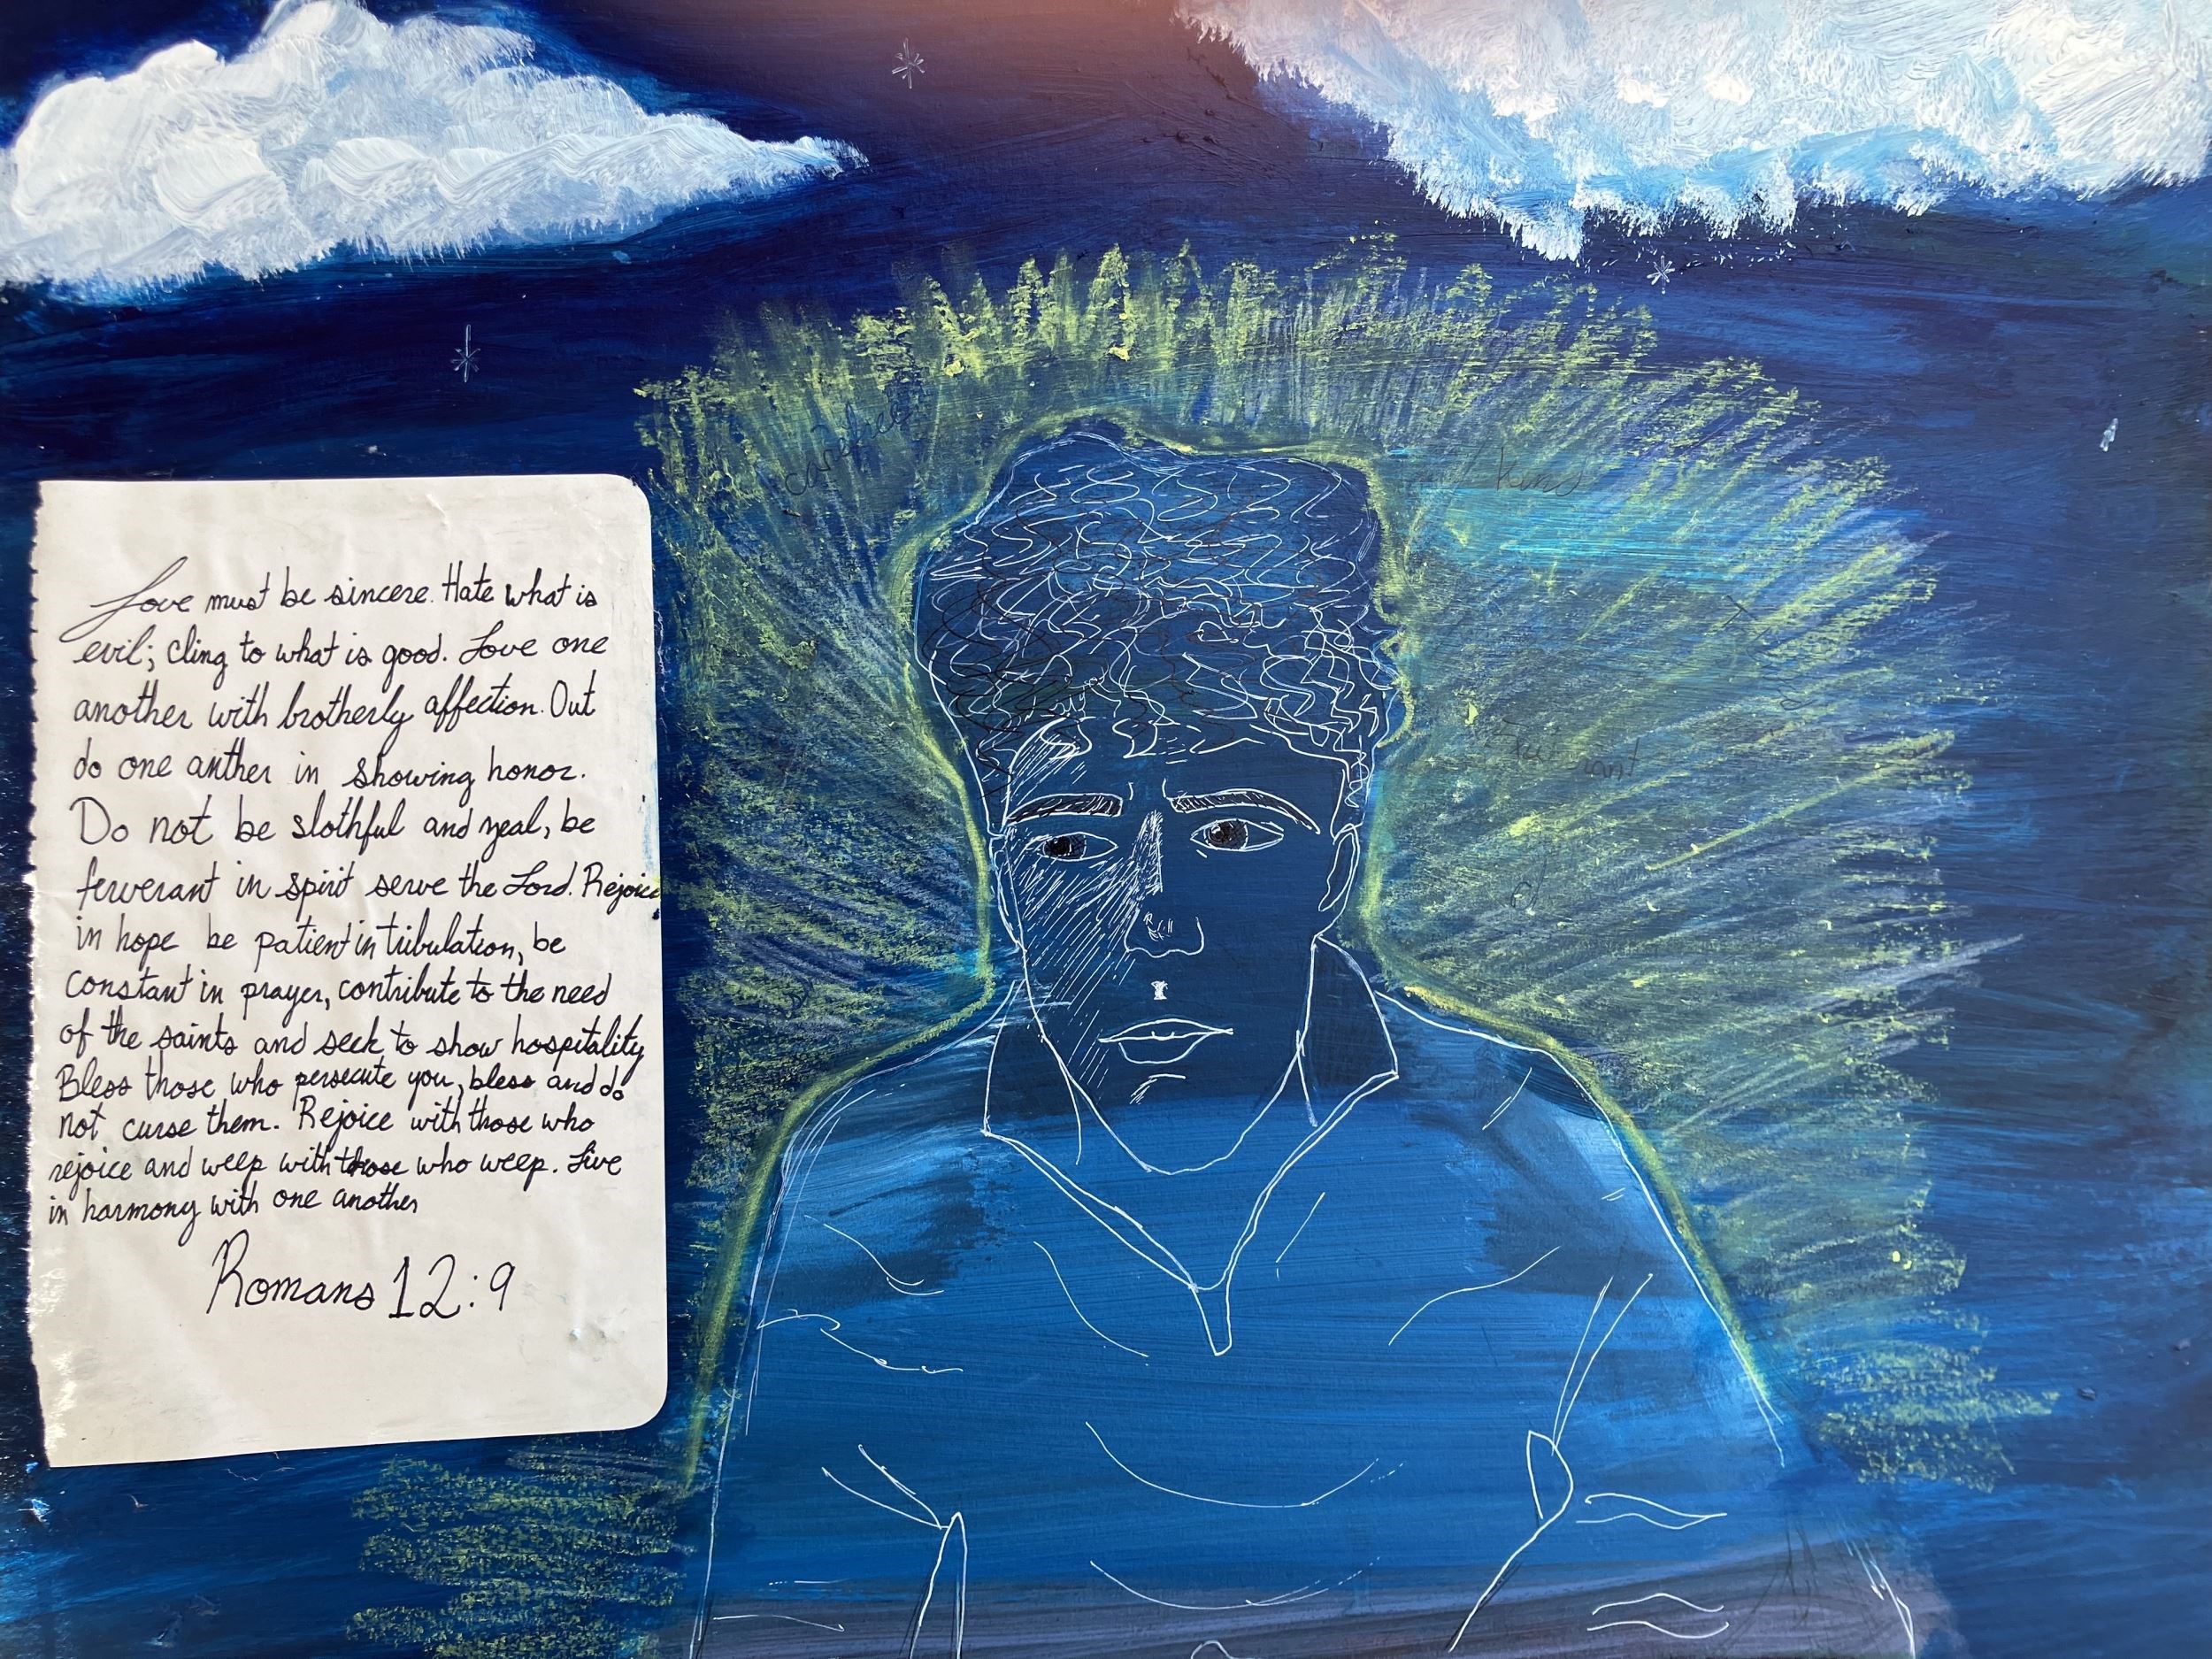 Love must be sincere. Hate what is
evil; cling to what is good. Love one
another with brotherly affection. Out
do one anther in showing honor.
Do not be slothful and zeal, be
ferverant in spirit serve the Lord. Rejoice
in hope be patient in tribulation, be
constant in prayer, contribute to the need
of the saints and seek to show hospitality
Bless those who persecute you, bless and do
not curse them. Rejoice with those who
rejoice and weep with those who weep. Live
in harmony with one another
Romans 12:9
carefree
kind